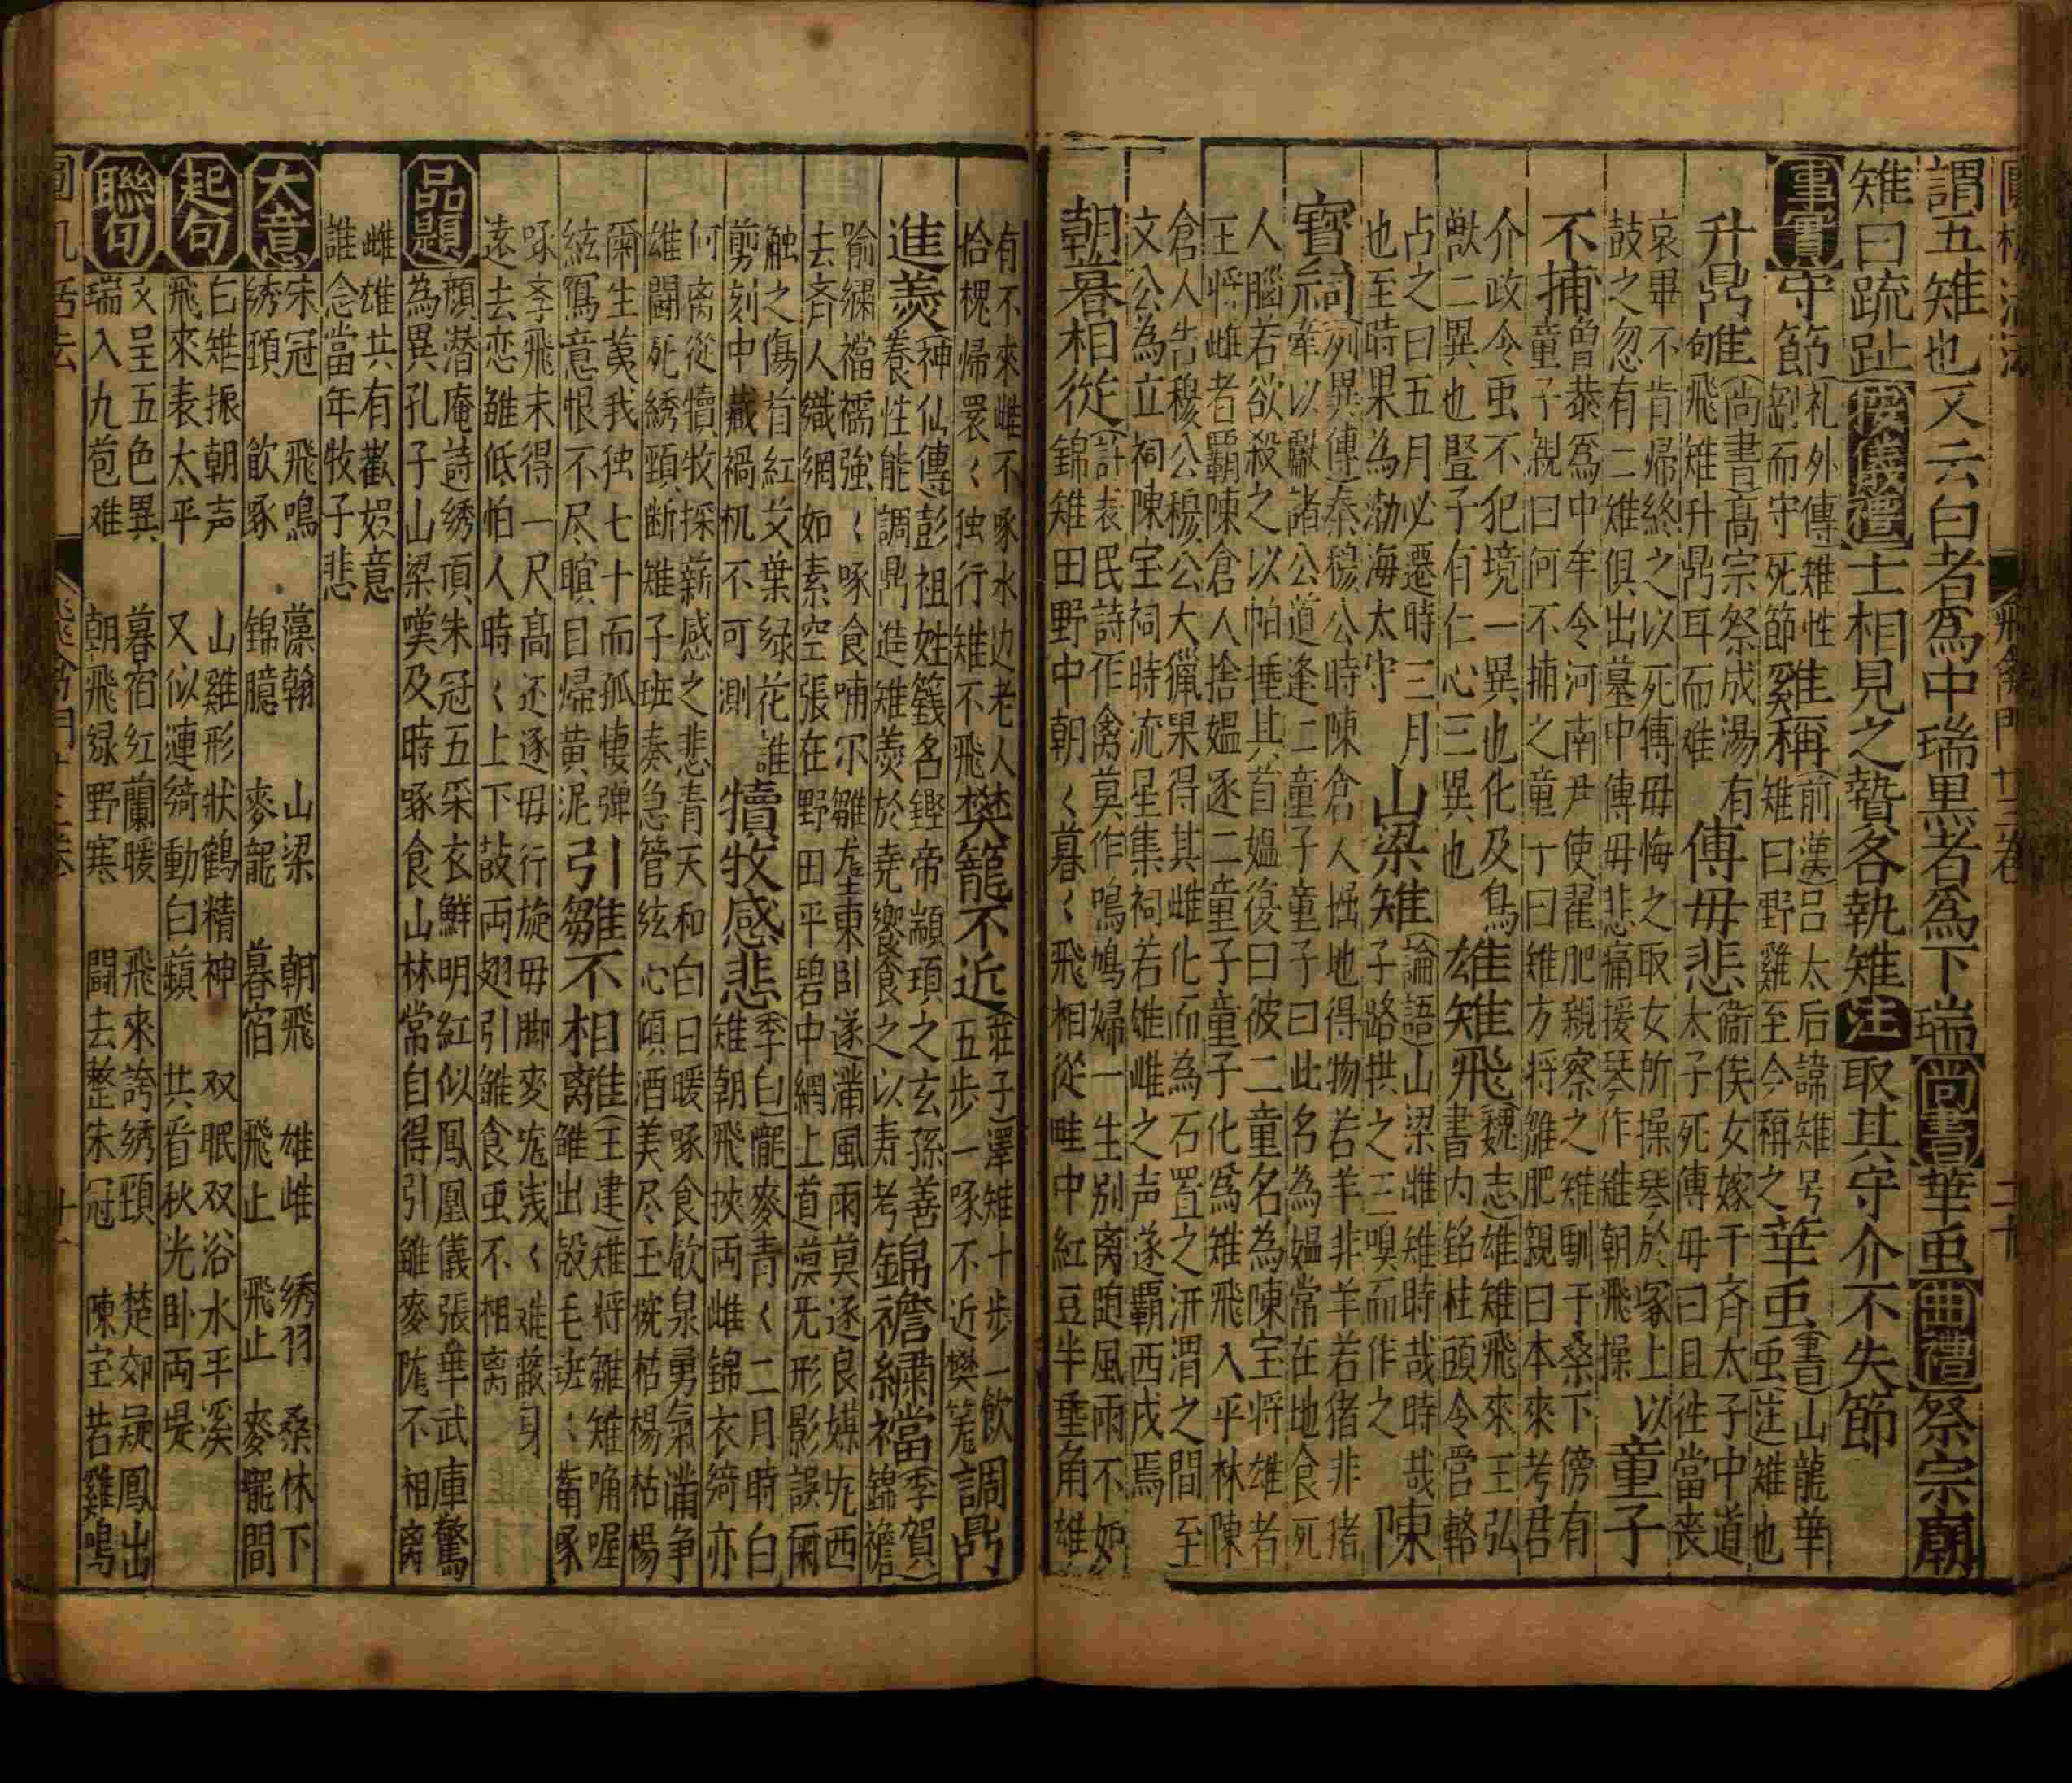 謂五雉也又云白者為中瑞黒者為下瑞尚書華虫曲禮祭宗廟
雉曰疏趾儀禮士相見之贄各執雉注取其守介不失節
事實守節礼外傳雉性劉而守死節雞稱前漢吕太后諱雉号雉曰野雞至今稱之華虫書山龍華虫注雉也
升鼎雊尚書高宗祭成湯有飛雉升鼎耳而雊傳母悲衞侯女嫁干斉太子中道太子死傳母曰且徃當丧
哀畢不肯帰終之以死傳母悔之取女所操琴於冢上鼓之忽有二雉俱出墓中傳母悲痛援琴作雉朝飛操以童子
不捕魯恭為中牟令河南尹使翟肥親察之雉馴于桑下傍有童子親曰何不捕之童丁曰雉方将雛肥親曰本來考君
介政令虫不犯境一異也化及鳥獣二異也豎子有仁心三異也雄雉飛魏志雄雉飛來王弘書内銘柱頭令官輅
占之曰五月必遷時三月也至時果為渤海太守山梁雉論語山梁雌雉時哉時哉子路拱之三嗅而作之陳
寶祠列異傳秦穆公時陳倉人掘地得物若羊非羊若猪非猪牽以獻諸公道逢二童子童子曰此名為媪常在地食死
人腦若欲殺之以帕捶其首媪復曰彼二童名為陳宝将雄者王将雌者覇陳倉人捨媪逐二童子童子化為雉飛入乎林陳
倉人告穆公穆公大獵果得其雌化而為石置之汧渭之間至文公為立祠陳宝祠時流星集祠若雄雌之声遂覇西戎焉
朝暮相從計表民詩作禽莫作鳴鳩婦一生别离随風雨不如錦雉田野中朝〻暮〻飛相從畦中紅豆半垂角雄
有不來雌不啄水边老人恰槐帰褁〻独行雉不飛樊籠不近莊子澤雉十步一飲五步一啄不近樊篭調鼎
進羮神仙傳彭祖姓籛名鏗帝顓頊之玄孫善養性能調鼎進雉羮於堯饗食之以寿考錦襜繡襠季賀錦襜
喻繍襠襦強〻啄食哺尔雛壟東卧遂滿風雨莫逐良媒坑西去斉人織網如素空張在野田平碧中網上道漠旡形影誤爾
触之傷首紅艾葉緑花誰剪刻中藏禍机不可測犢牧感悲季白隴麥青〻二月時白雉朝飛挾両雌錦衣綺亦
何离從犢牧採薪感之悲青天和白曰暖啄食飲泉勇氣滿争雄鬬死綉頸断雉子班奏急管絃心傾酒美尽玉椀枯楊枯楊
爾生荑我独七十而孤悽弾絃寫意恨不尽瞑目帰黄泥引雛不相離王建雉将雛雉哊喔雛出殻毛斑〻觜啄
啄斉飛未得一尺高还逐毋行旋母脚麥壠浅〻难蔽身遠去恋雛低怕人時〻上下敲両翅引雛食虫不相离
雌雄共有歡娯意誰念當年牧子悲
品題顔潜庵詩綉頂朱冠五采衣鮮明紅似鳳凰儀張華武庫驚為異孔子山梁嘆及時啄食山林常自得引雛麥隴不相离
大意朱冠飛鳴藻翰山梁朝飛雄雌綉羽桑休下綉頸飲啄錦臆麥龍暮宿飛止飛止麥寵間
起句白雉振朝声山雞形狀鶴精神双眠双浴水平溪飛來表太平又似漣綺動白蘋共看秋光卧両堤
聯句文呈五色異暮宿红蘭暖飛來誇绣頸楚郊疑鳳出瑞入九苞难朝飛緑野寒闘去整朱冠陳宝若雞鳴